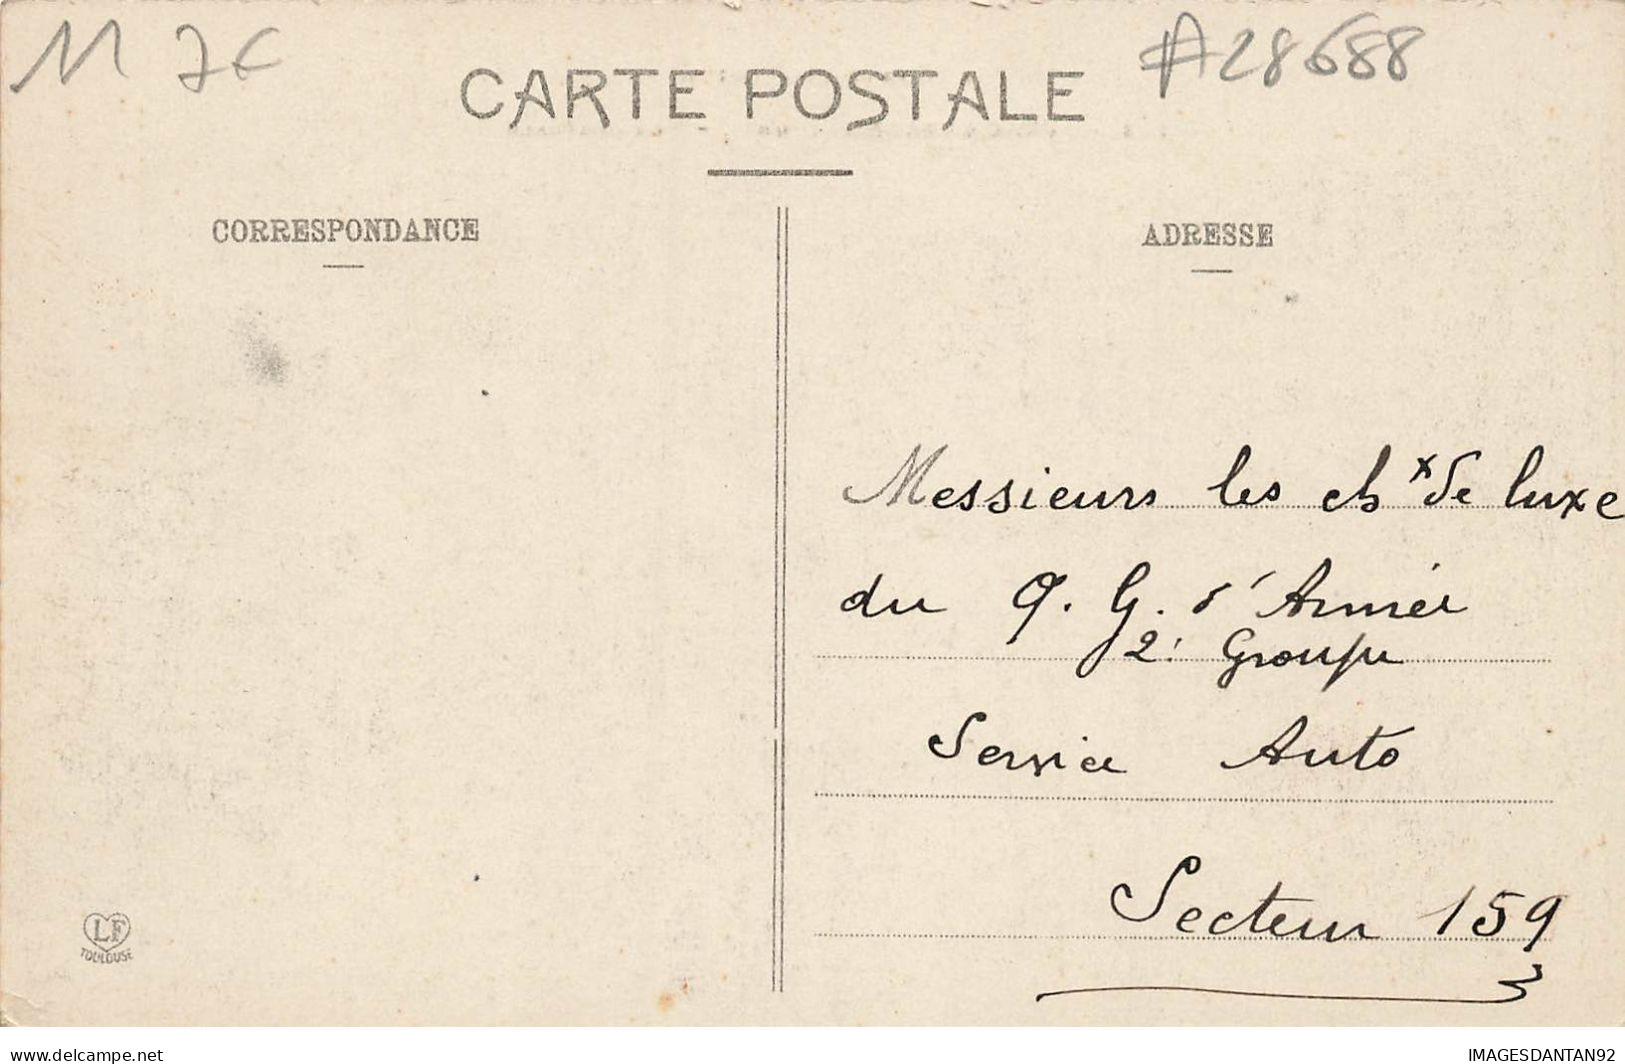 M 7€
#28688
CARTE POSTALE
CORRESPONDANCE
ADRESSE
Messieurs les chx de luxe
du Q. G. d'Armée
2e Groupe
Service Auto
Secteur 159
LF
TOULOUSE
delcampe.net
IMAGESDANTAN92